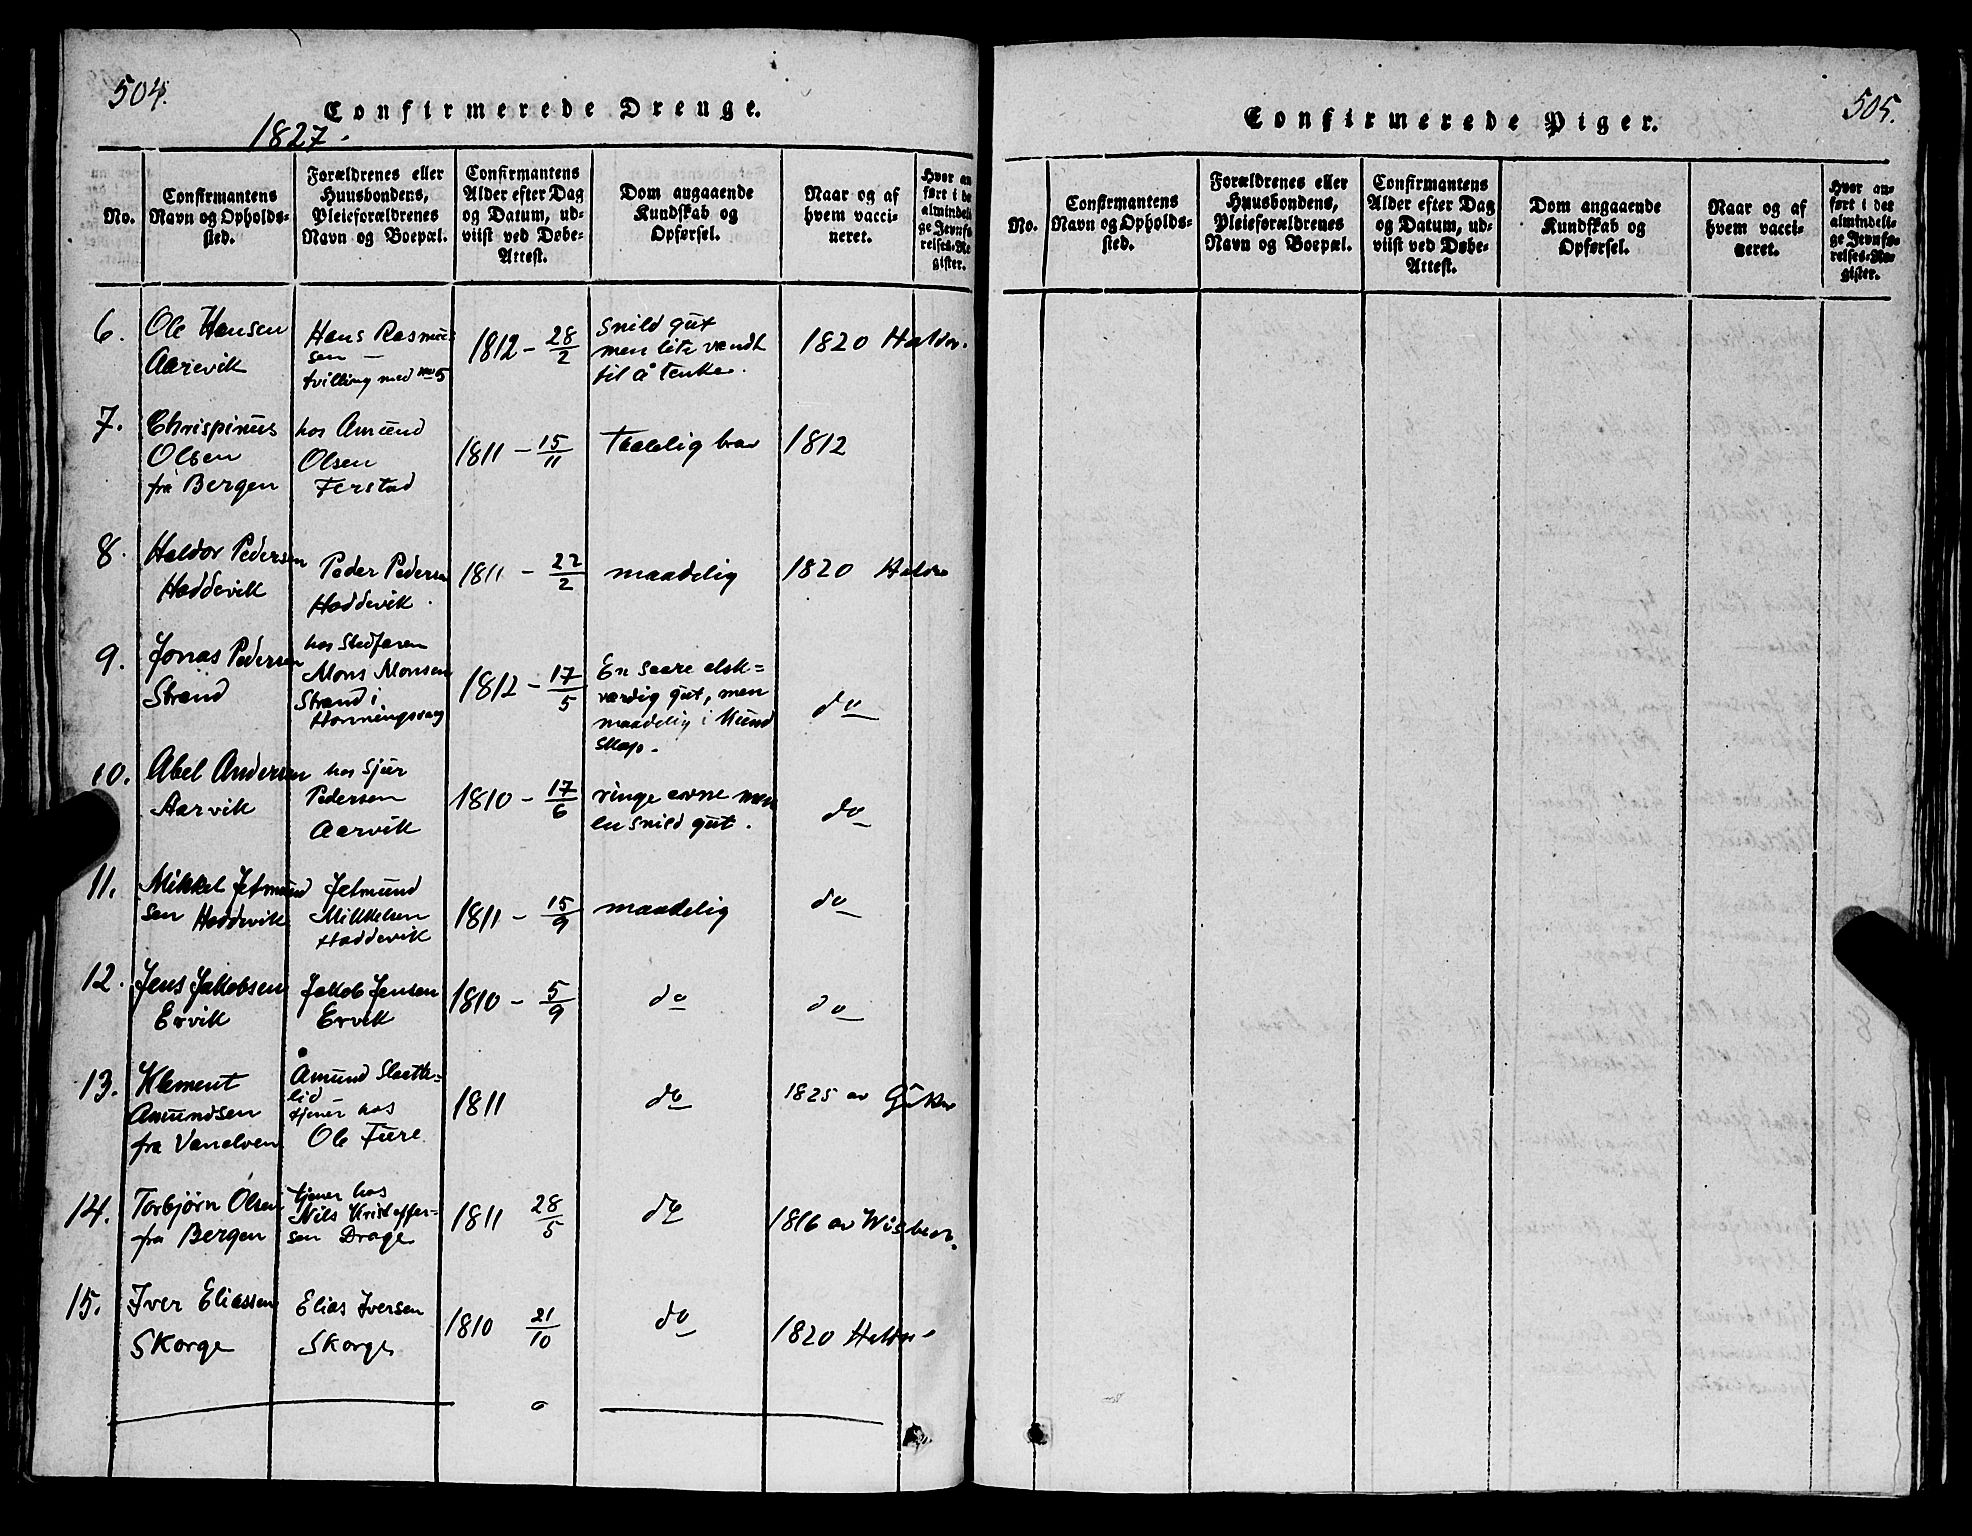 504.
Confirmerede Drenge.
1827.
No.
Confirmantens
Navn og Opholds-
sted.
Forældrenes eller
Huusbondens,
Pleieforældrenes
Navn og Boepæl.
Confirmantens
Alder efter Dag
og Datum, ud-
viist ved Døbe-
Attest.
Dom angaaende
Kundskab og
Opførsel.
Naar og af
hvem vacci-
neret.
Hvor an
ført i de
almindeli
ge Jevnfø
relses-Re
gister.
6.
Ole Hansen
Aarevik
Hans Rasmus
sen —
tvilling med no 5
1812 - 28/2
Snild gut
men lite vandt
til å tenke.
1820 Haldor.
7.
Chrispinus
Olsen
fra Bergen
hos Amund
Olsen
Ferstad
1811 - 15/11
Taalelig bra
1812
8.
Haldor Pedersen
Hoddevik
Peder Pedersen
Hoddevik.
1811 - 22/2
maadelig
1820
9.
Jonas Pedersen
Strand
hos Stedfaren
Mons Monsen
Strand i
Honningsvag
1812 - 17/5
En saare elsk=
værdig gut, men
maadelig i Kund
skap.
do
10.
Abel Andersen
Aarvik
hos Sjur
Pedersen
Aarvik
1810 - 17/6
ringe evne men
en snild gut.
do
11.
Mikkel Jetmund
sen Hoddevik
Jetmund
Mikkelsen
Hoddevik
1811 - 15/9
maadelig
do
12.
Jens Jakobsen
Ervik
Jakob Jensen
Ervik
1810 - 5/9
do
do
13.
Klement
Amundsen
fra Vanelven
Åmund Slette=
lid
tjener hos
Ole Fure
1811
do
1825 av
14.
Torbjørn Olsen
fra Bergen
tjener hos
Nils Kristoffer-
sen Drage
1811 28/5
do
1816 av
15.
Iver Eliassen
Skorge
Elias Iversen
Skorge
1810 21/10
do
1820
505.
Confirmerede Piger.
No.
Confirmantens
Navn og Opholds-
sted.
Forældrenes eller
Huusbondens,
Pleieforældrenes
Navn og Boepæl.
Confirmantens
Alder efter Dag
og Datum, ud-
viist ved Døbe-
Attest.
Dom angaaende
Kundskab og
Opførsel.
Naar og af
hvem vacci-
neret.
Hvor an-
ført i det
almindeli-
ge Jevnfø-
relses-Re-
gister.